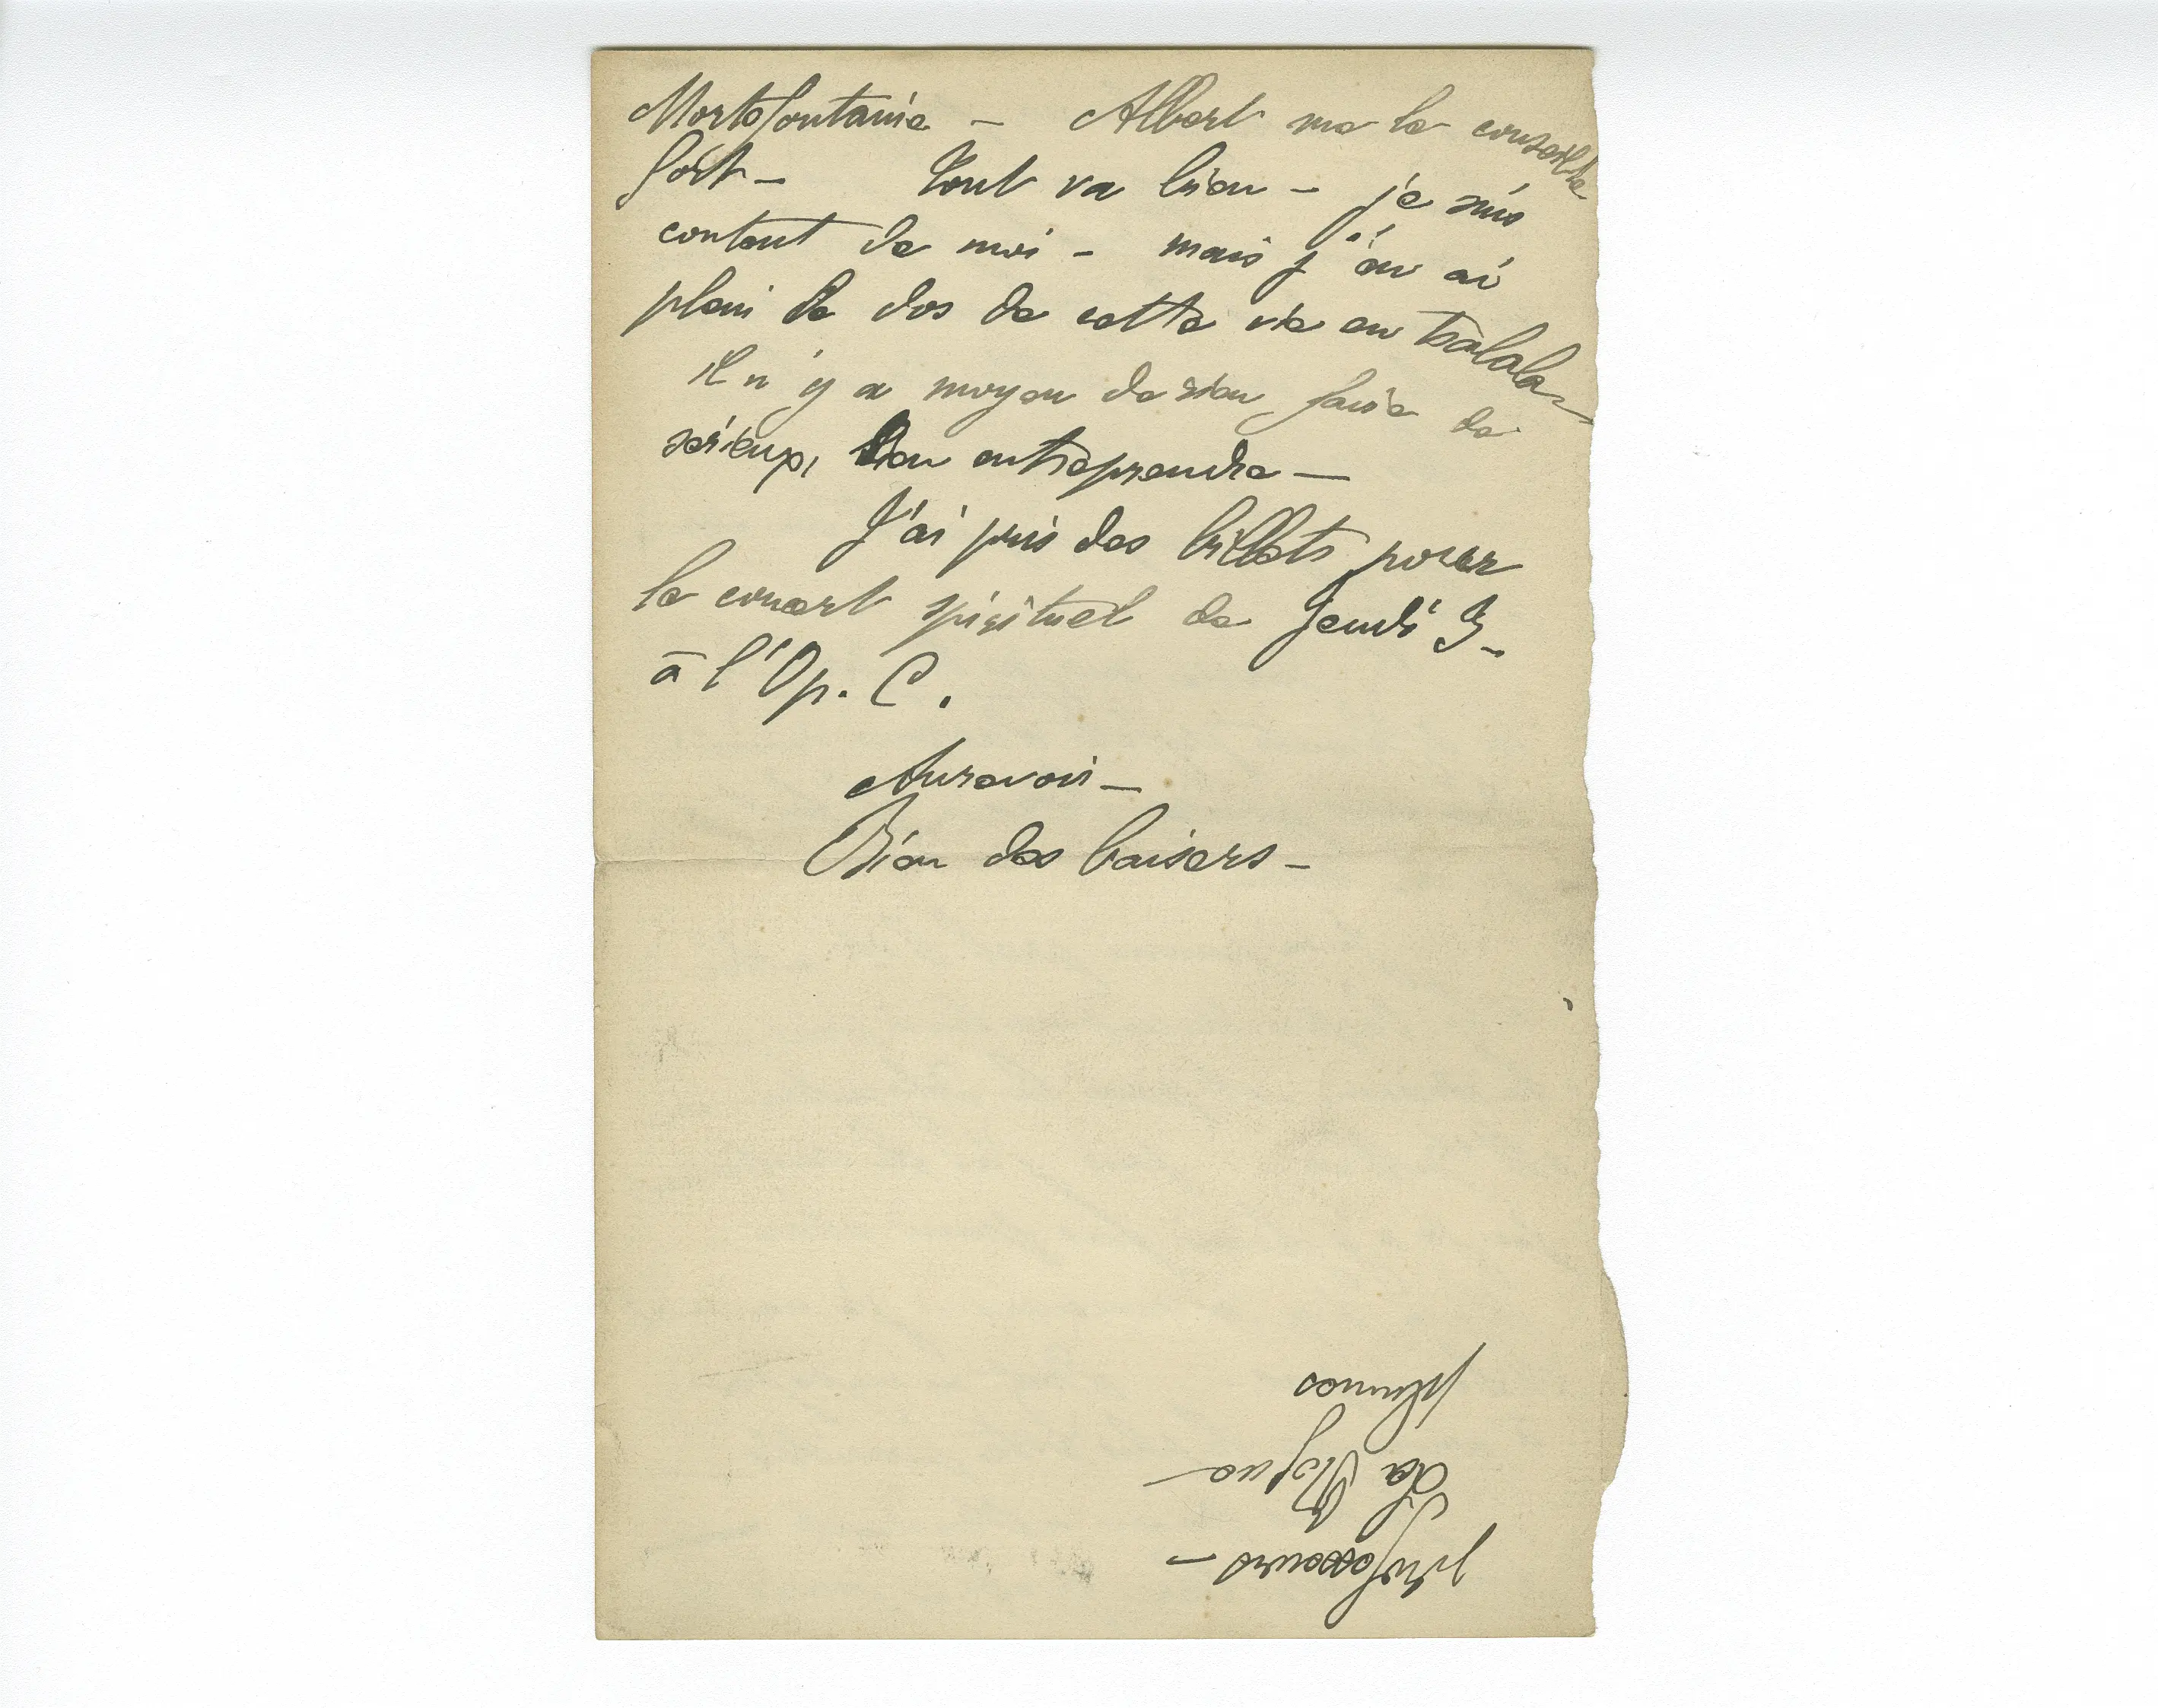 Mortefontaine – Albert me le conseille
fort – Tout va bien – je suis
content de moi – mais j'en ai
plein le dos de cette vie en tralala –
il n'y a moyen de rien faire de
sérieux, d'en entreprendre –
J'ai pris des billets pour
le concert spirituel de Jeudi 3 –
à l'Op. C.
Aurevoir –
Bien des baisers –
professeurs –
La Vigne –
plumes